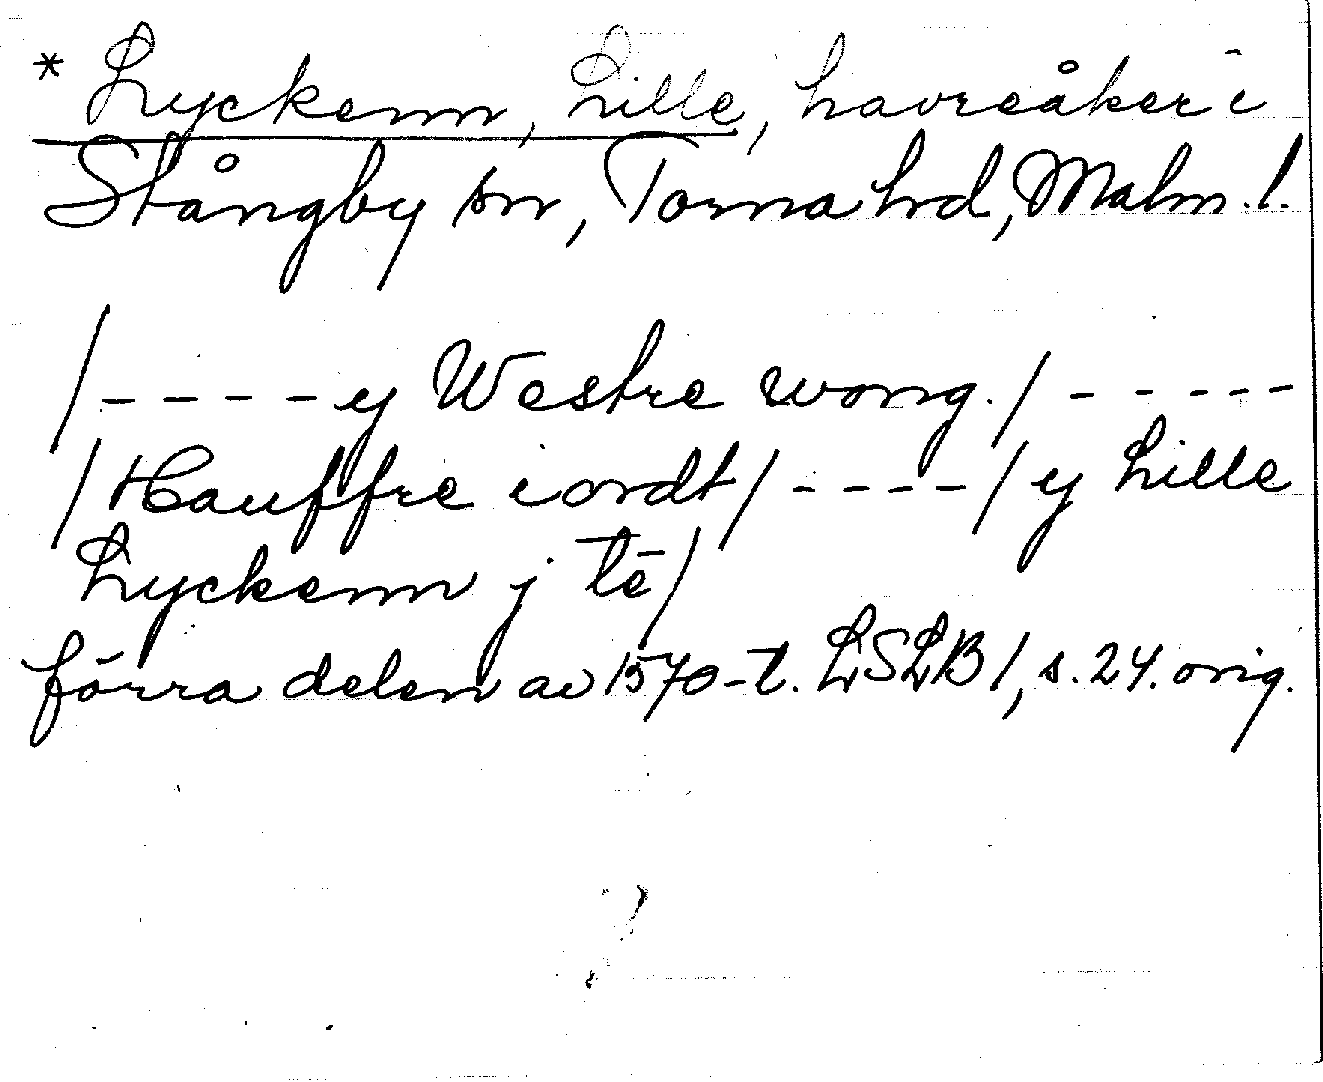 * Lyckenn, Lille, havreåker i
Stångby sn, Torna hrd, Malm. l.
/- - - - y Westre wong. / - - - - -
/ Hauffre iordt / - - - - / y Lille
Lyckenn j tē /
förra delen av 1570-t. LSLB 1, s. 24. orig.